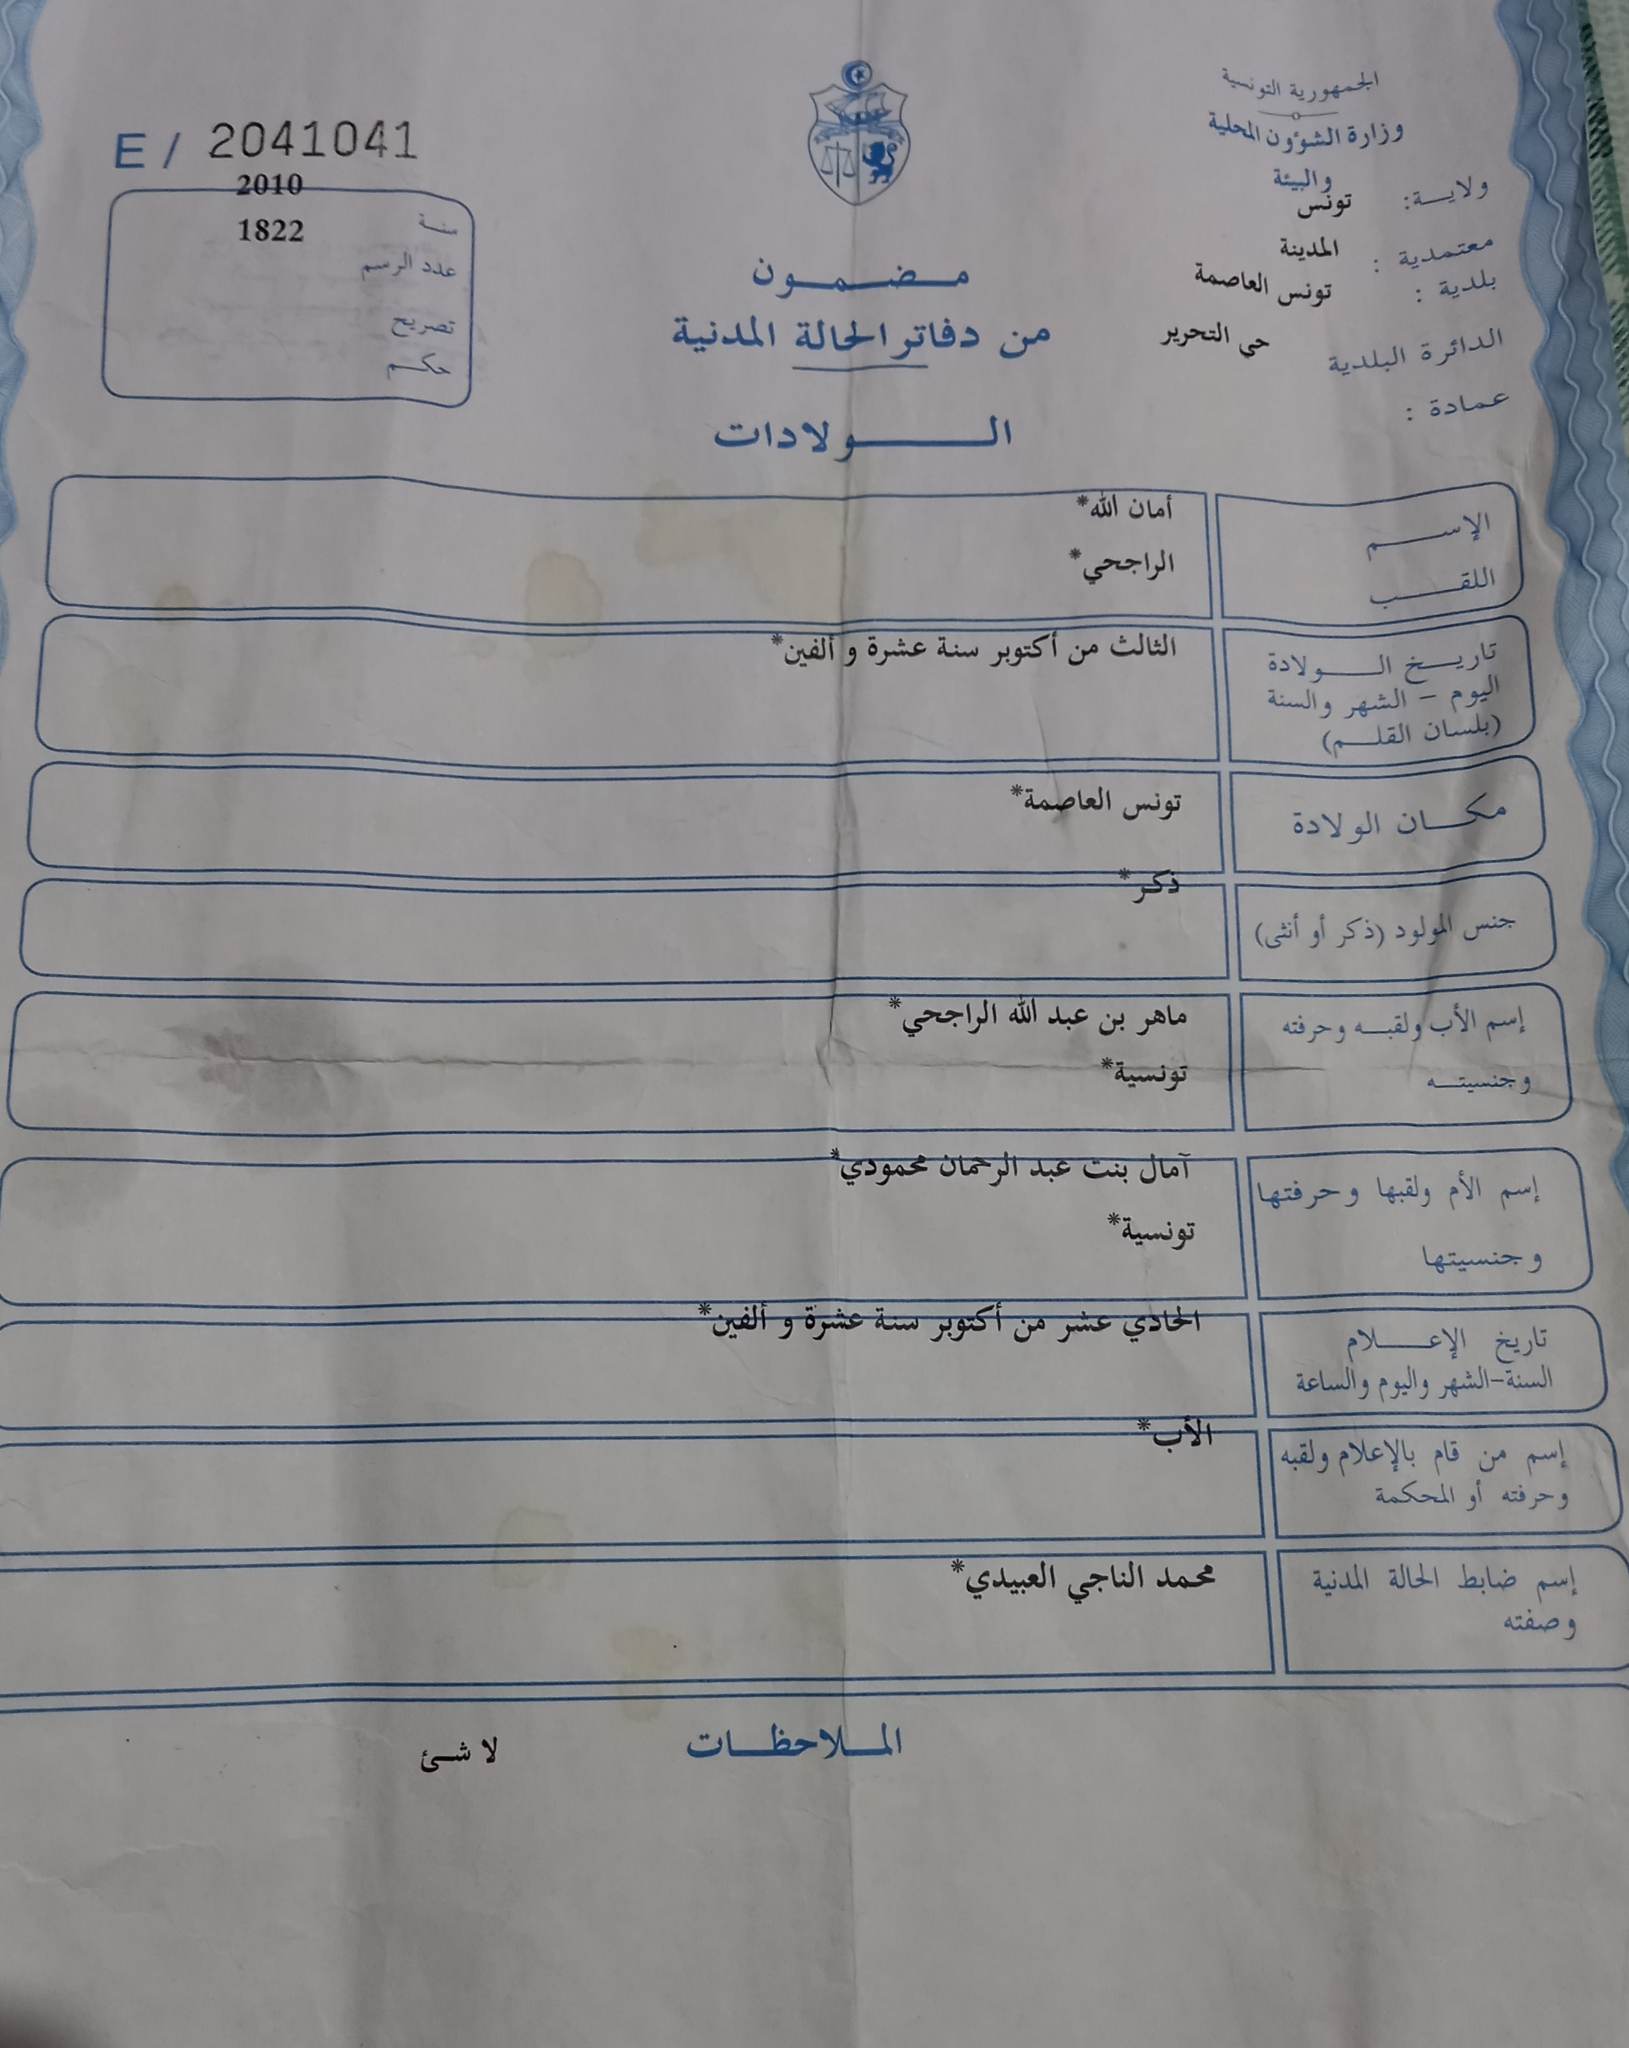 الجمهورية التونسية
وزارة الشؤون المحلية
والبيئة
ولايـــة: تونس
معتمدية : المدينة
بلدية : تونس العاصمة
الدائرة البلدية حي التحرير
عمادة :
مـضـمـون
من دفاتر الحالة المدنية
الـولادات
E / 2041041
2010
سنة
1822
عدد الرسم
تصريح
حكم
الإسـم أمان الله*
اللقـب الراجحي*
تاريخ الـولادة الثالث من أكتوبر سنة عشرة و ألفين*
اليوم – الشهر والسنة
(بلسان القلـم)
مكـان الولادة تونس العاصمة*
ذكر*
جنس المولود (ذكر أو أنثى)
إسم الأب ولقبـه وحرفته ماهر بن عبد الله الراجحي*
وجنسيتـه تونسية*
إسم الأم ولقبها وحرفتها آمال بنت عبد الرحمان محمودي*
وجنسيتها تونسية*
تاريخ الإعـلام الحادي عشر من أكتوبر سنة عشرة و ألفين*
السنة-الشهر واليوم والساعة
إسم من قام بالإعلام ولقبه الأب*
وحرفته أو المحكمة
إسم ضابط الحالة المدنية محمد الناجي العبيدي*
وصفته
المـلاحظـات لا شـئ